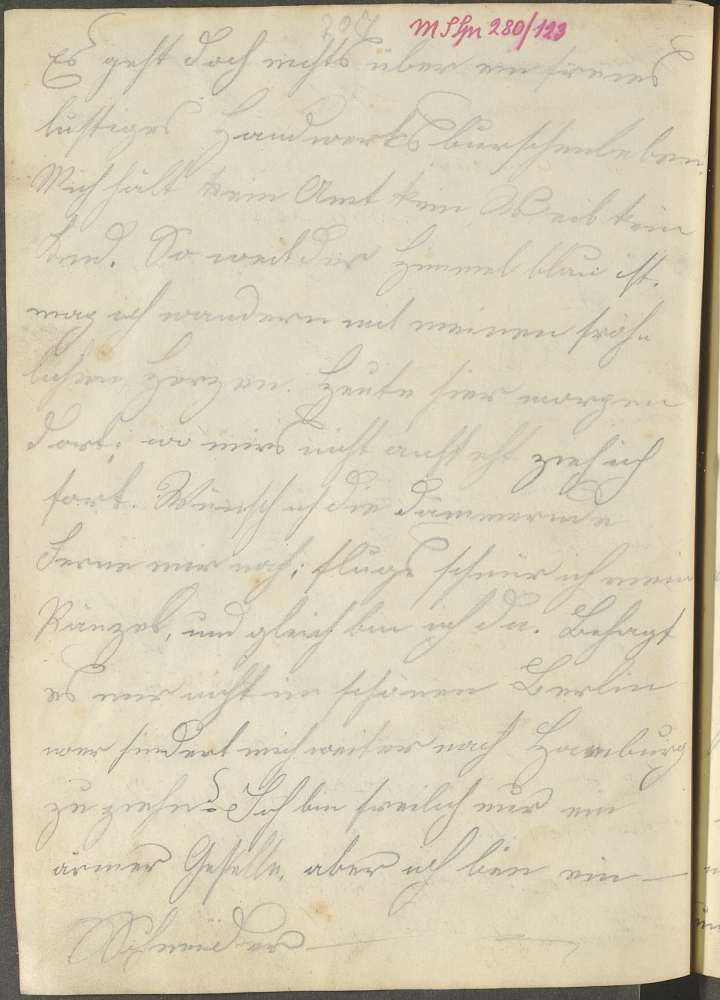 MSHn 280/123
Es geht doch nichts über ein freies
lustiges Handwerksburschenleben.
Mich hält kein Amt kein Weib kein
Kind. So weit der Himmel blau ist.
mag ich wandern mit meinen fröh-
lichen Herzen. Heute hier morgen
dort; wo mirs nicht ansteht zieh ich
fort. Wünsch ich die dämmernde
Ferne mir nah; flugs schnür ich mein
Ränzel, und gleich bin ich da. Behagt
es mir nicht im schönen Berlin
wer hindert mich weiter nach Hamburg
zu ziehn? Ich bin freilich nur ein
armer Geselle, aber ich bin ein —
Schneider —